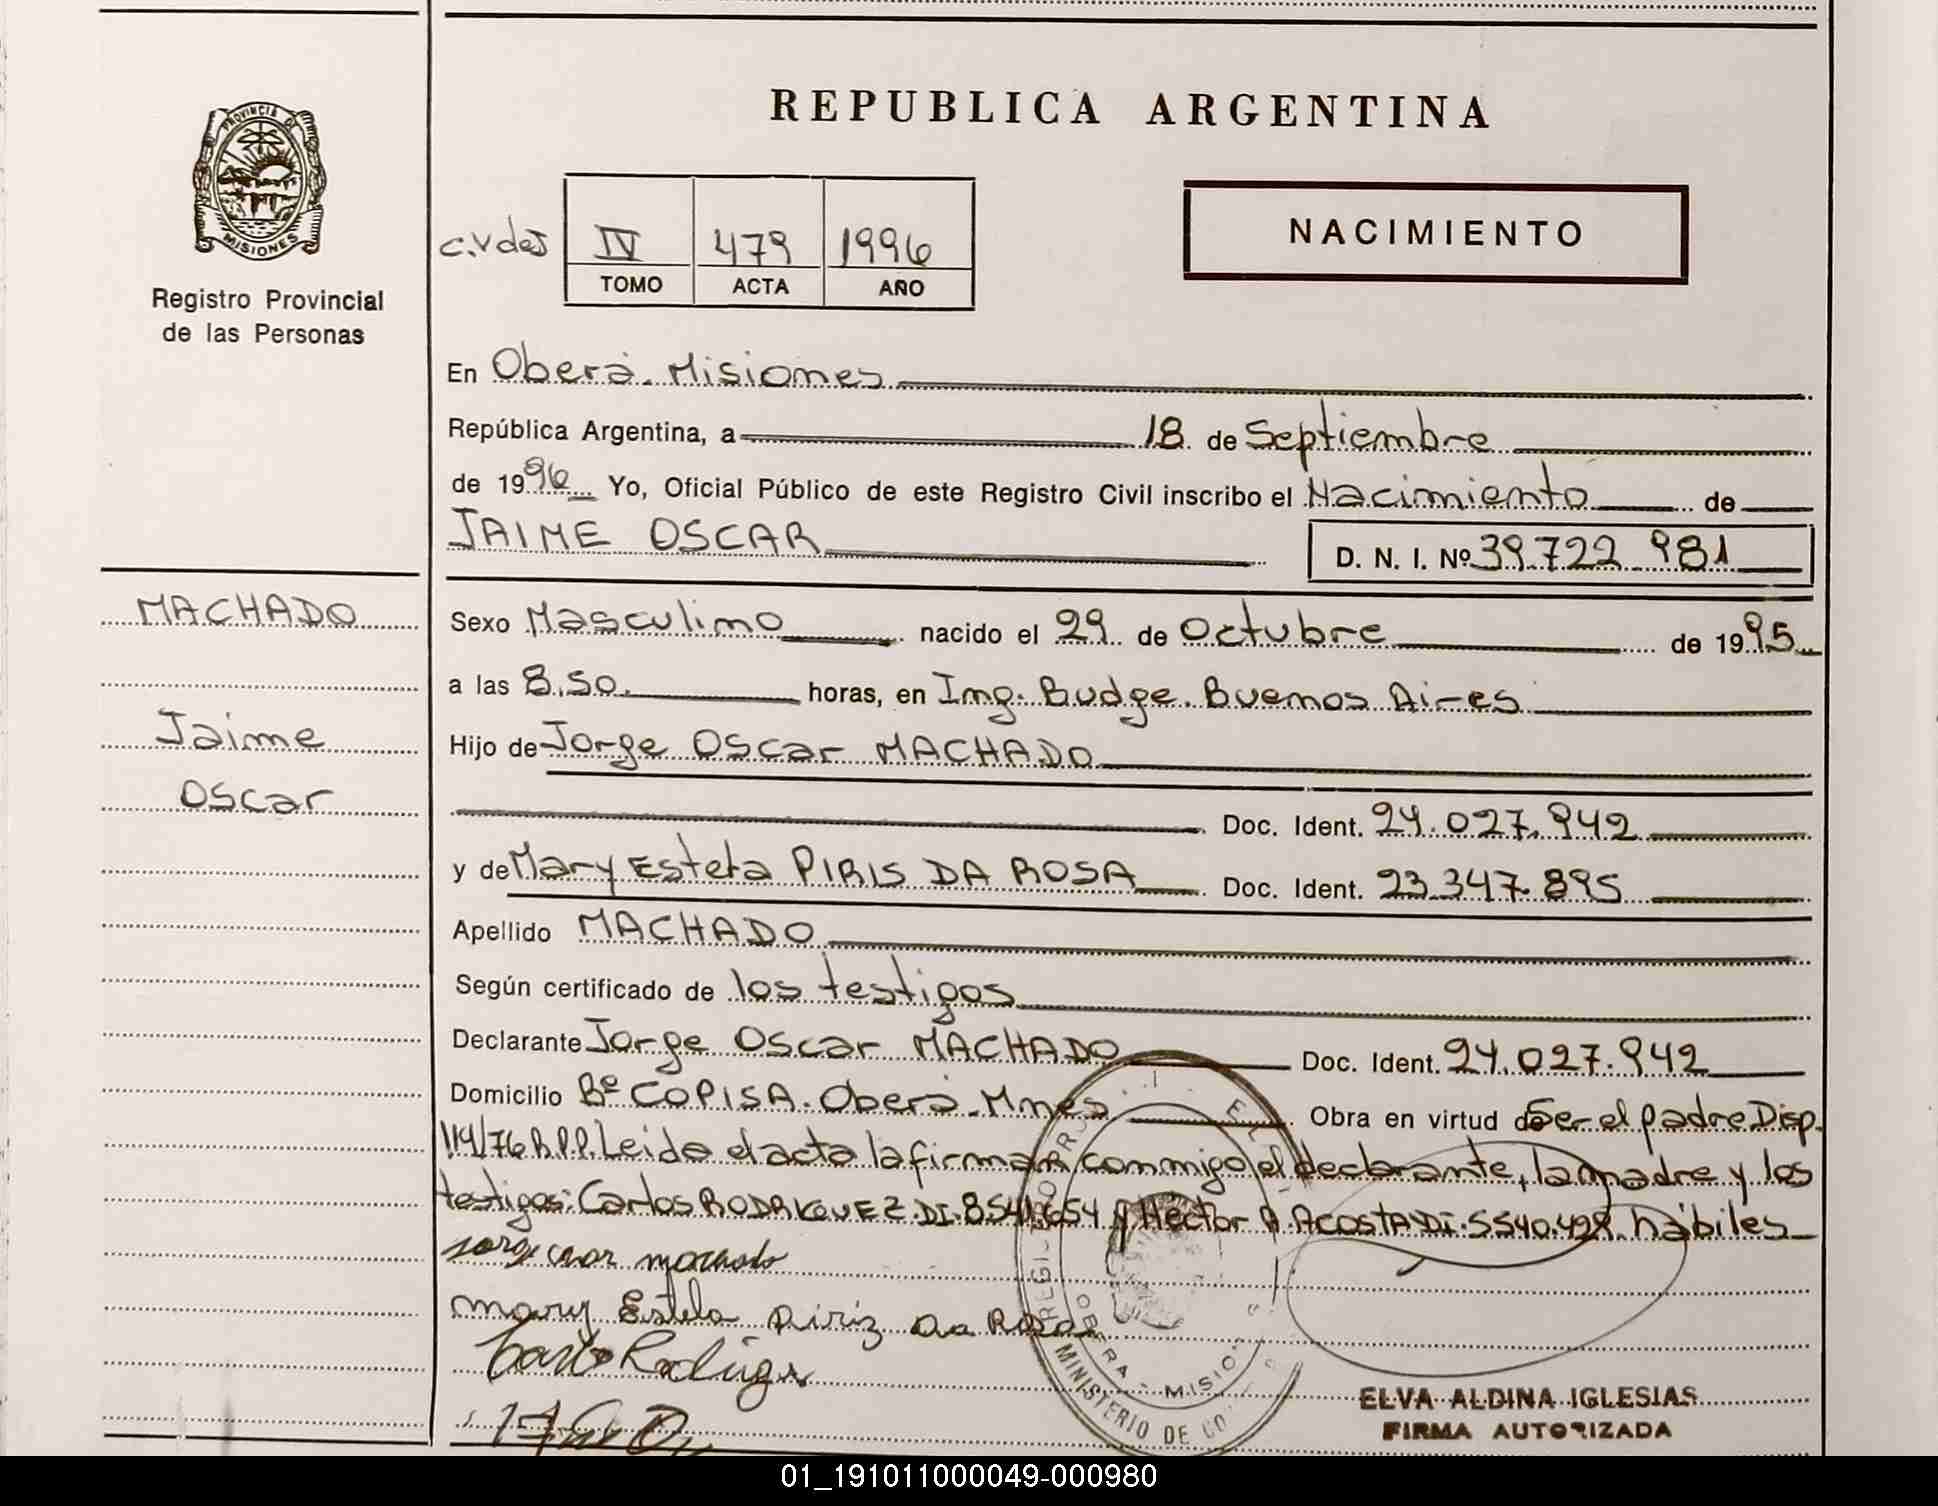 REPUBLICA ARGENTINA
PROVINCIA DE
MISIONES
Registro Provincial
de las Personas
c.v des
IV 479 1996
TOMO ACTA AÑO
NACIMIENTO
En Oberá. Misiones
República Argentina, a 18 de Septiembre
de 1996 Yo, Oficial Público de este Registro Civil inscribo el Nacimiento de
JAIME OSCAR D. N. I. Nº 39.722.981
MACHADO
Jaime
Oscar
Sexo Masculino nacido el 29 de Octubre de 1995
a las 8.50. horas, en Ing. Budge. Buenos Aires
Hijo de Jorge Oscar MACHADO
Doc. Ident. 24.027.942
y de Mary Estela PIRIS DA ROSA Doc. Ident. 23.347.895
Apellido MACHADO
Según certificado de los testigos
Declarante Jorge Oscar MACHADO Doc. Ident. 24.027.942
Domicilio Bº COPISA. Oberá. Mnes Obra en virtud de Ser el padre Disp.
114/76 R.P.P. Leida el acta la firman conmigo el declarante, la madre y los
testigos: Carlos RODRIGUEZ. DI. 8.541.654 y Hector A. ACOSTA DI. 5540.429. hábiles
Jorge oscar machado
mary Estela Piriz Da Rosa
Carlos Rodrigue
MINISTERIO DE
OBERA - MISION
ELVA ALDINA IGLESIAS
FIRMA AUTORIZADA
01_191011000049-000980